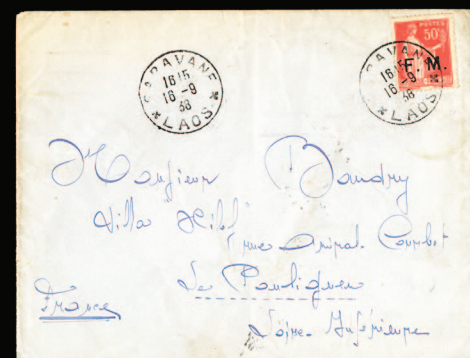 SARAVANE
1615
16-9
36
* LAOS *
POSTES
50c
F. M.
SARAVANE
1615
16-9
36
* LAOS *
Monsieur Baudry
Villa
rue Amiral Courbet
Le Pouliguen
France
Loire-Inférieure